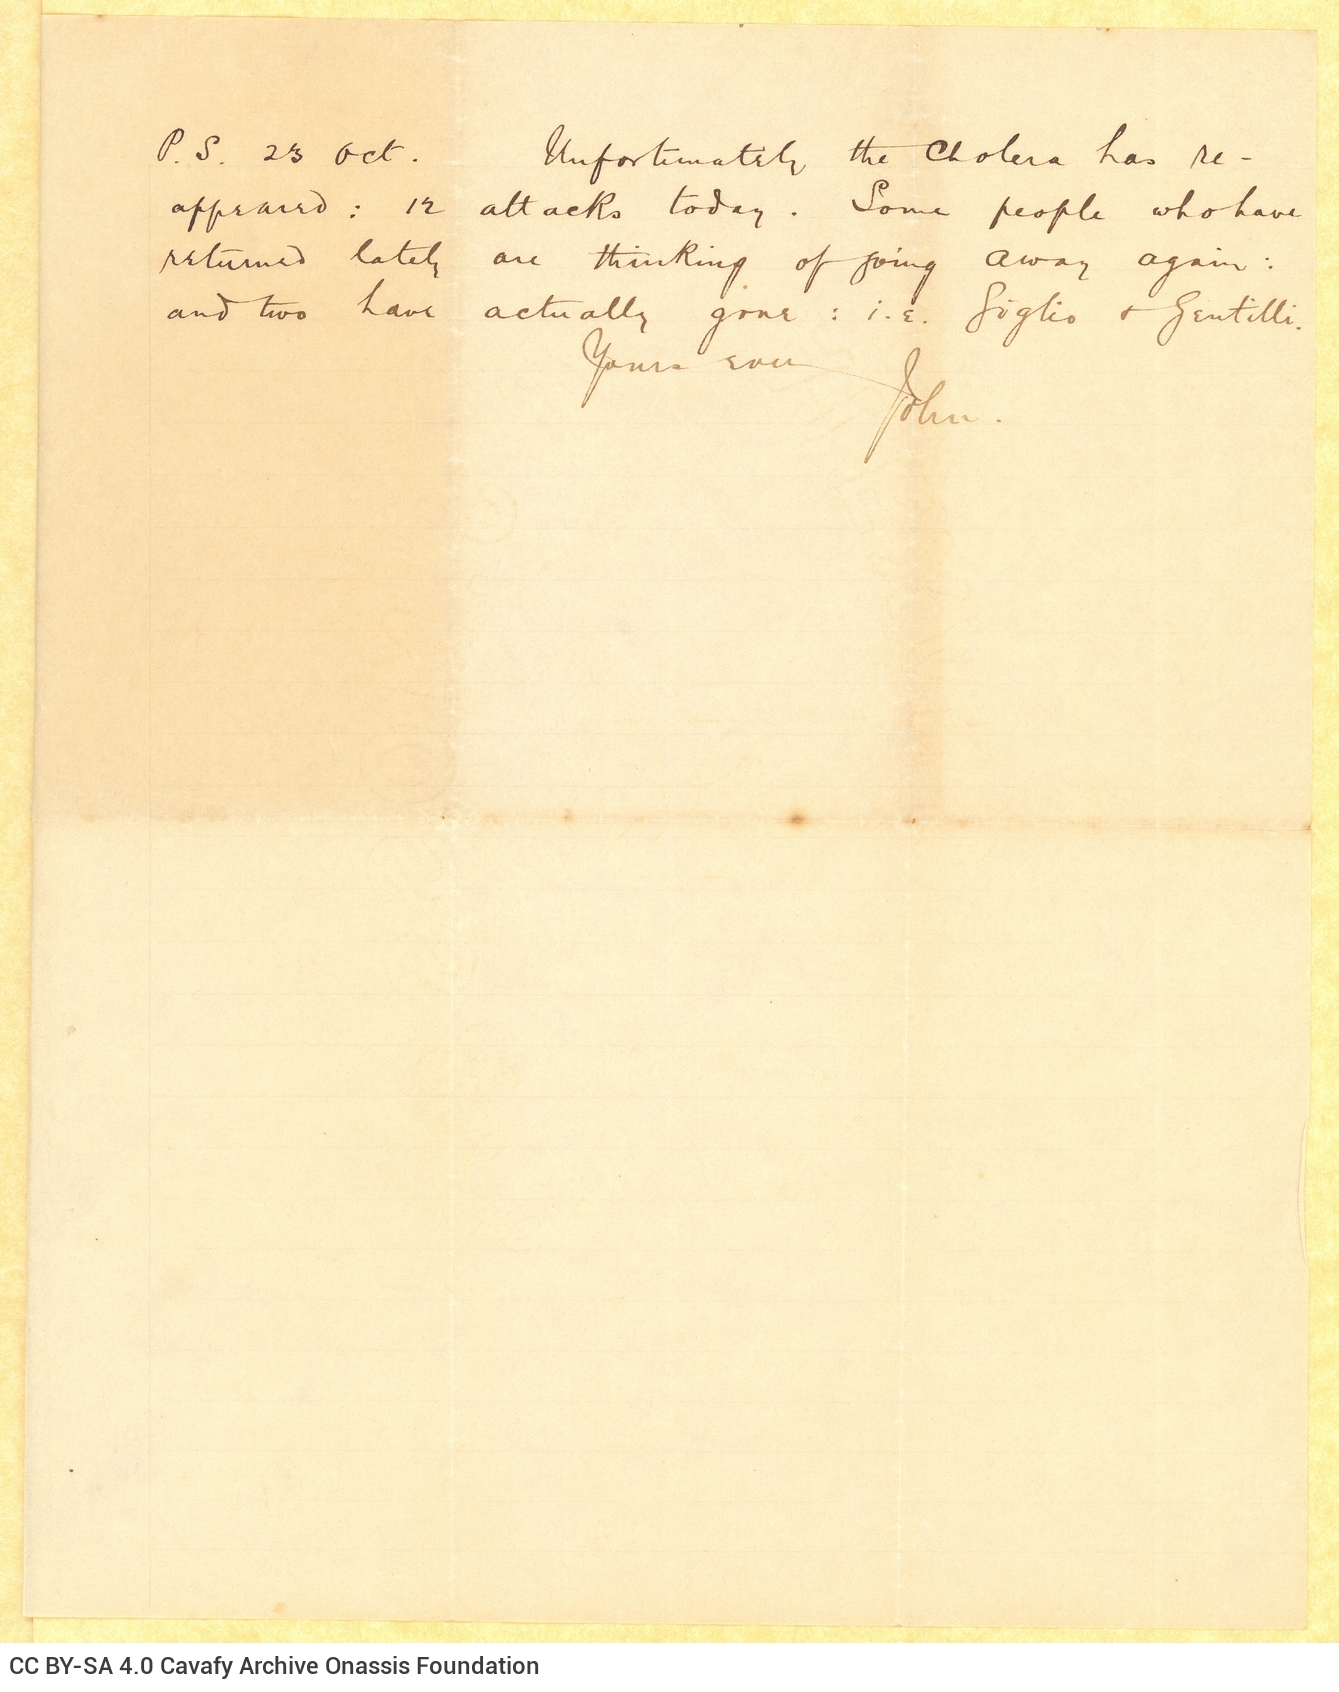 P. S. 23 Oct. Unfortunately the Cholera has re-
appeared : 12 attacks today . Some people who have
returned lately are thinking of going away again :
and two have actually gone : i.e. Giglio & Gentilli.
Yours ever
John .
CC BY-SA 4.0 Cavafy Archive Onassis Foundation